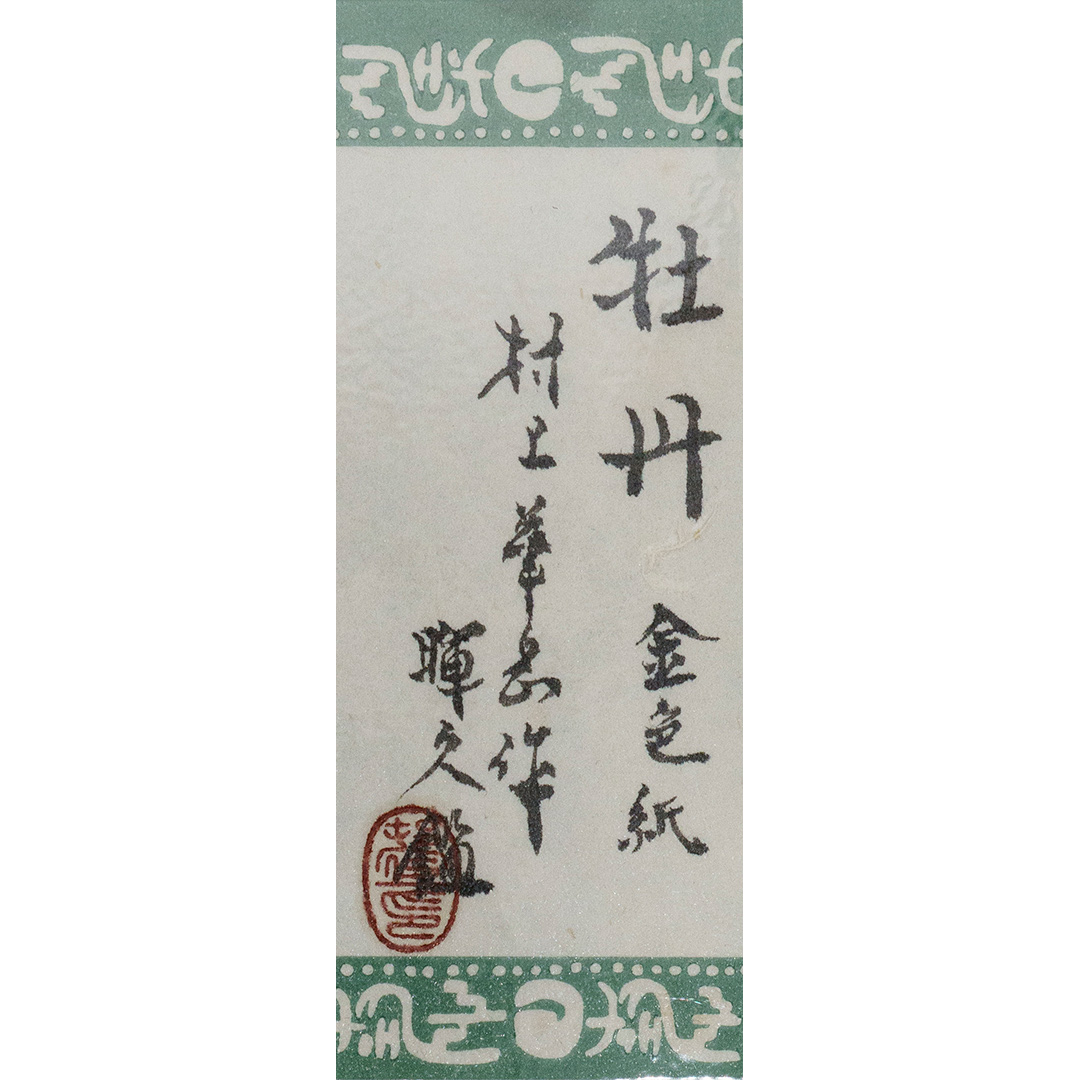 牡丹 金色紙
村上華岳作
暉久鑑